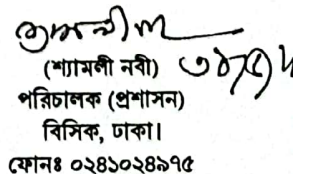 (শ্যামলী নবী)
পরিচালক (প্রশাসন)
বিসিক, ঢাকা।
ফোনঃ ০২৪১০২৪৯৭৫